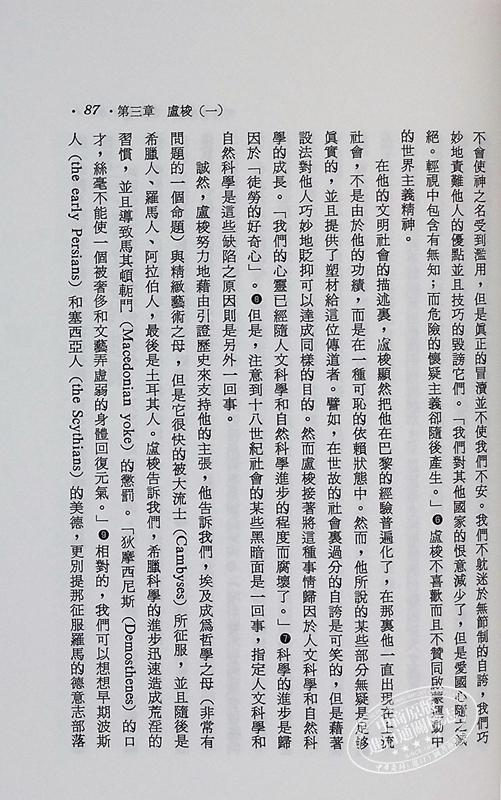 • 87 • 第三章　盧梭（一）
不會使神之名受到濫用，但是眞正的冒瀆並不使我們不安。我們不躭迷於無節制的自誇，我們巧
妙地責難他人的優點並且技巧的毀謗它們。「我們對其他國家的恨意減少了，但是愛國心隨之滅
絕。輕視中包含有無知；而危險的懷疑主義卻隨後產生。」❻盧梭不喜歡而且不贊同啟蒙運動中
的世界主義精神。
在他的文明社會的描述裏，盧梭顯然把他在巴黎的經驗普遍化了，在那裏他一直出現在上流
社會，不是由於他的功績，而是在一種可恥的依賴狀態中。然而，他所說的某些部分無疑是足够
眞實的，並且提供了塑材給這位傳道者。譬如，在世故的社會裏過分的自誇是可笑的，但是藉著
設法對他人巧妙地貶抑可以達成同樣的目的。然而盧梭接著將這種事情歸因於人文科學和自然科
學的成長。「我們的心靈已經隨人文科學和自然科學進步的程度而腐壞了。」❼科學的進步是歸
因於「徒勞的好奇心」。❽但是，注意到十八世紀社會的某些黑暗面是一回事，指定人文科學和
自然科學是這些缺陷之原因則是另外一回事。
誠然，盧梭努力地藉由引證歷史來支持他的主張，他告訴我們，埃及成爲哲學之母（非常有
問題的一個命題）與精緻藝術之母，但是它很快的被大流士（Cambyses）所征服，並且隨後是
希臘人、羅馬人、阿拉伯人，最後是土耳其人。盧梭告訴我們，希臘科學的進步迅速造成荒淫的
習慣，並且導致馬其頓軛門（Macedonian yoke）的懲罰。「狄摩西尼斯（Demosthenes）的口
才，絲毫不能使一個被奢侈和文藝弄虛弱的身體回復元氣。」❾相對的，我們可以想想早期波斯
人（the early Persians）和塞西亞人（the Scythians）的美德，更別提那征服羅馬的德意志部落